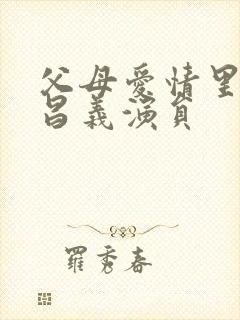 父母愛情里
昌義演員
羅秀春